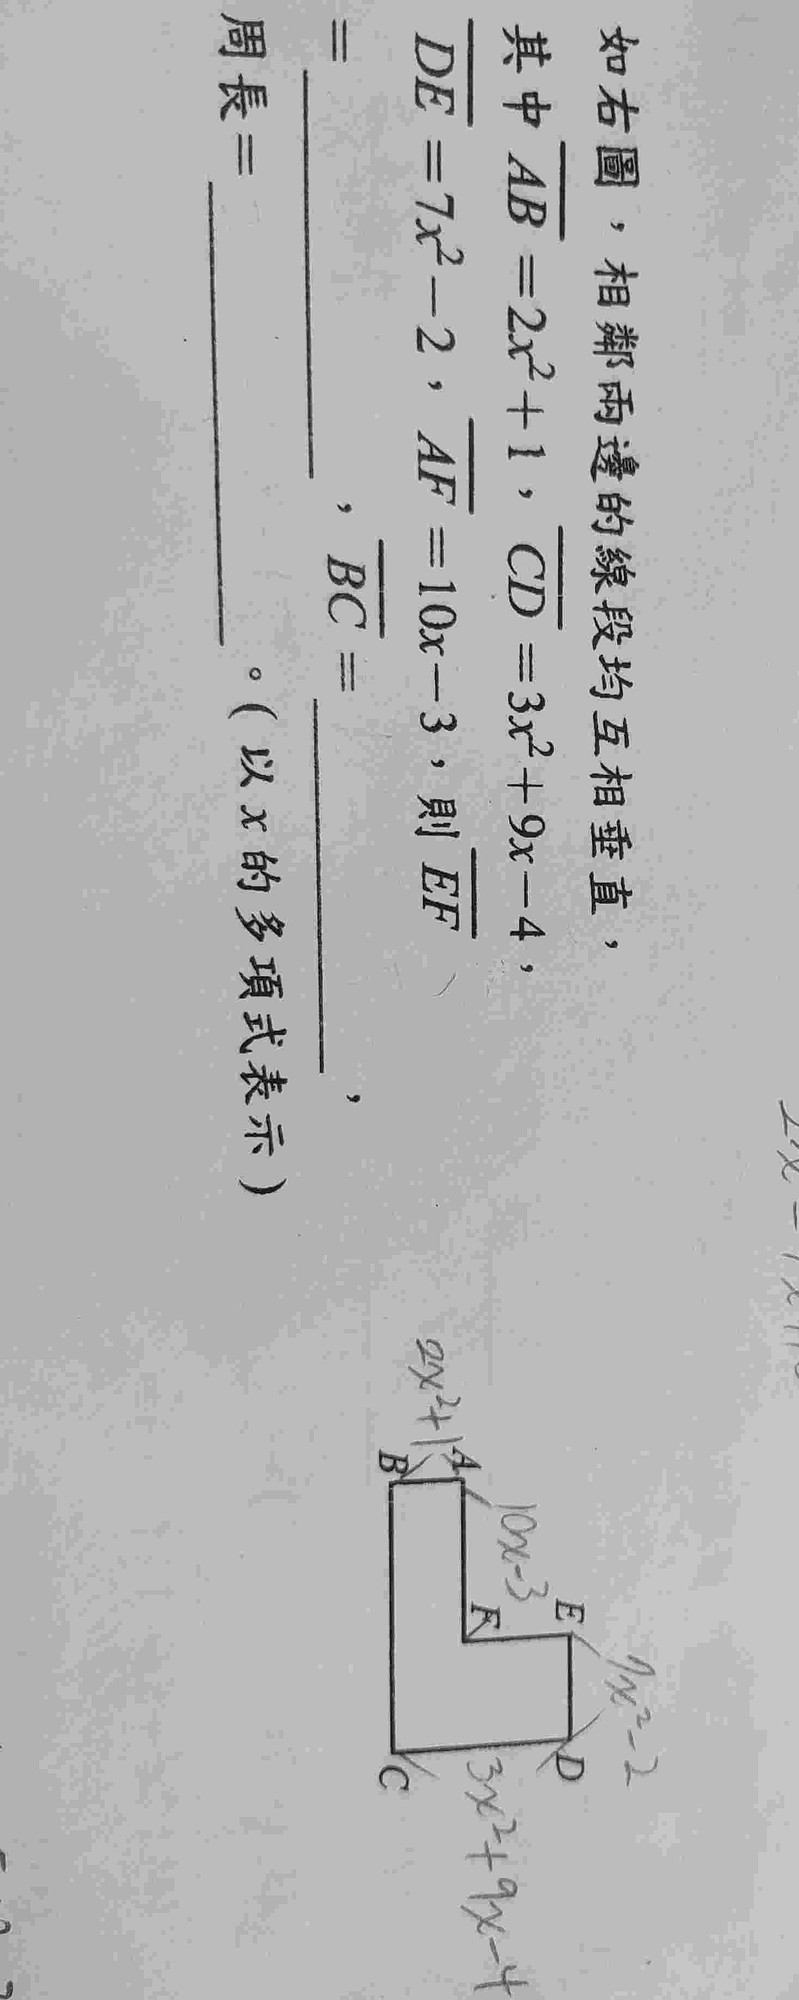 如右圖，相鄰兩邊的線段均互相垂直，
其中 AB =2x²+1，CD =3x²+9x-4，
DE =7x²-2，AF =10x-3，則 EF
= ，BC = ，
周長= 。(以 x 的多項式表示)
E
7x²-2
D
10x-3
A
F
2x²+1
B
3x²+9x-4
C